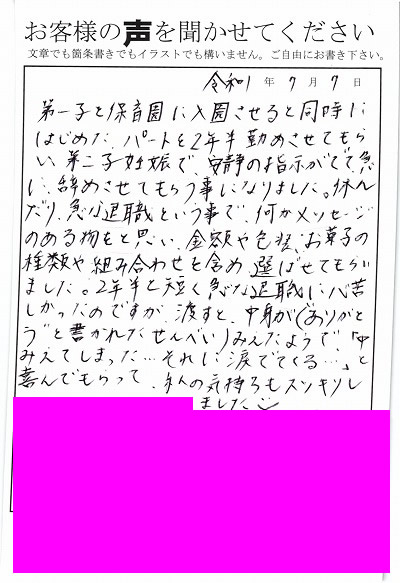 お客様の声を聞かせてください
文章でも箇条書きでもイラストでも構いません。ご自由にお書き下さい。
令和1年7月7日
第一子を保育園に入園させると同時に
はじめた、パートを2年半勤めさせてもら
い、第二子妊娠で、安静の指示がでて急
に、辞めさせてもらう事になりました。休ん
だり、急な退職という事で、何かメッセージ
のある物をと思い、金額や包装、お菓子の
種類や組み合わせを含め、選ばせてもらい
ました。2年半と短く急な退職に心苦
しかったのですが、渡すと、中身が(ありがと
う"と書かれたせんべい)みえたようで「中
みえてしまった…それに涙でてくる…」と
喜んでもらって、の気持ちもスッキリし
ました